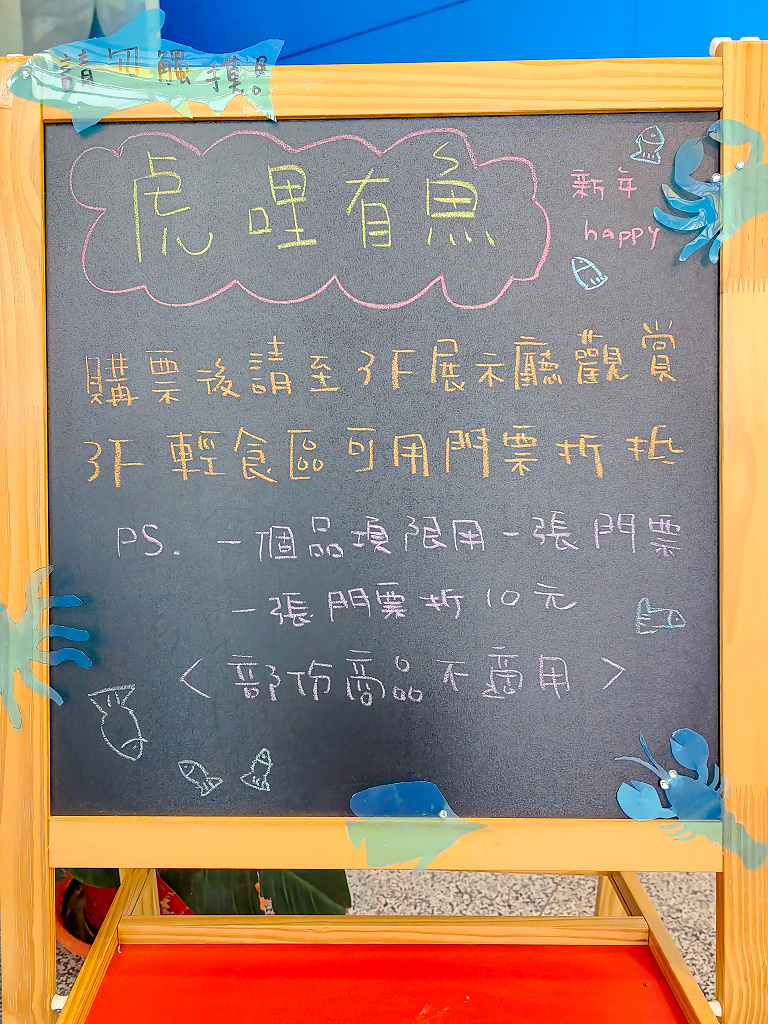 請勿觸摸
虎哩有魚
新年
happy
購票後請至3F展示廳觀賞
3F輕食區可用門票折抵
PS. 一個品項限用一張門票
一張門票折10元
<部份商品不適用>